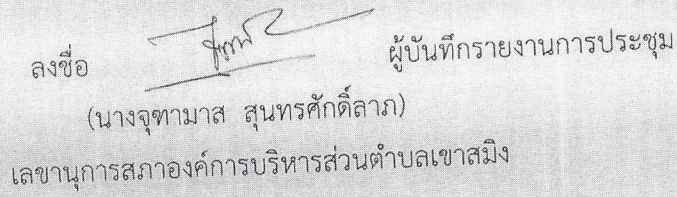 ลงชื่อ ผู้บันทึกรายงานการประชุม
(นางจุฑามาส สุนทรศักดิ์ลาภ)
เลขานุการสภาองค์การบริหารส่วนตำบลเขาสมิง